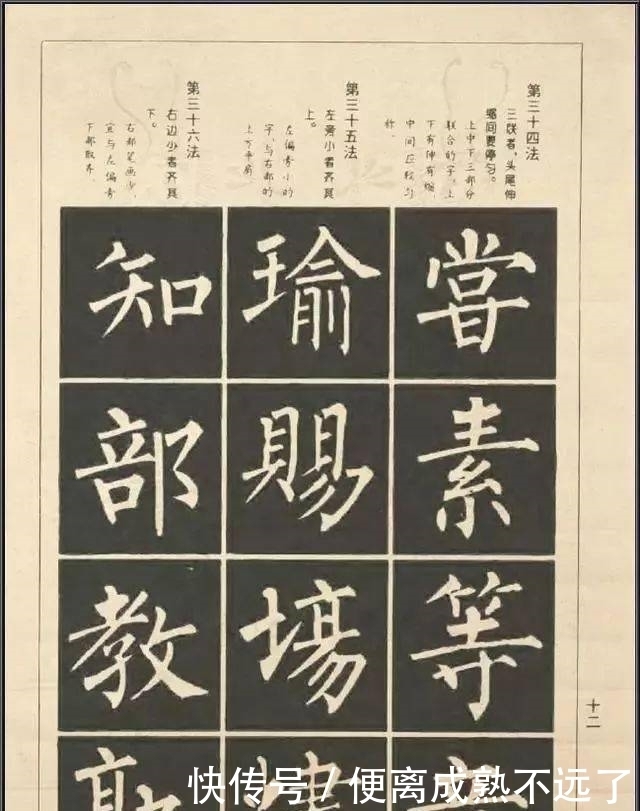 第三十四法
三联者，头尾伸
缩间要停匀。
上中下三部分
联合的字，上
下有伸有缩，
中间
称。
嘗
素
等
第三十五法
左旁小者齐其
上。
左偏旁小的
字，与右部的
上下平肩
瑜
賜
塲
第三十六法
右边少者齐其
下。
右部笔画少，
宜与左偏旁
下部取齐
知
部
教
十二
快传号 / 便离成熟不远了